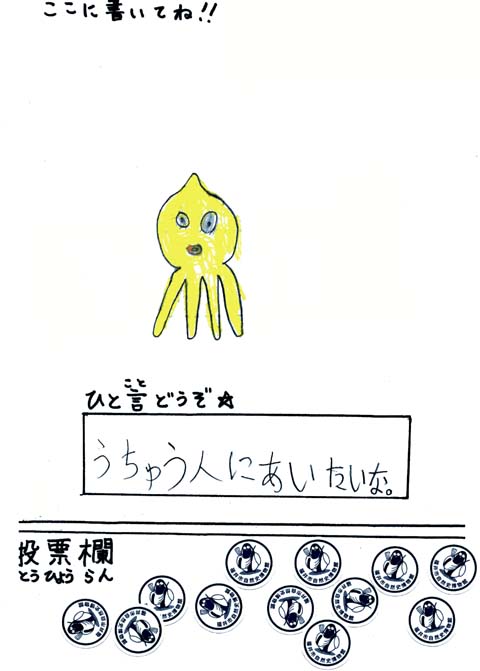 ここに書いてね!!
こと
ひと言どうぞ☆
うちゅう人にあいたいな。
投票欄
とうひょうらん